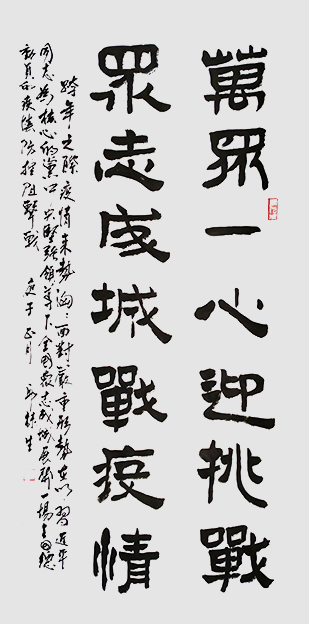 萬眾一心迎挑戰
眾志成城戰疫情
跨年之際疫情来勢洶〻面對嚴重形勢在以習近平
同志為核心的黨中央堅强領導下全國眾志成城展開一場全國總
動員的疫情防控阻擊戰
庚子正月